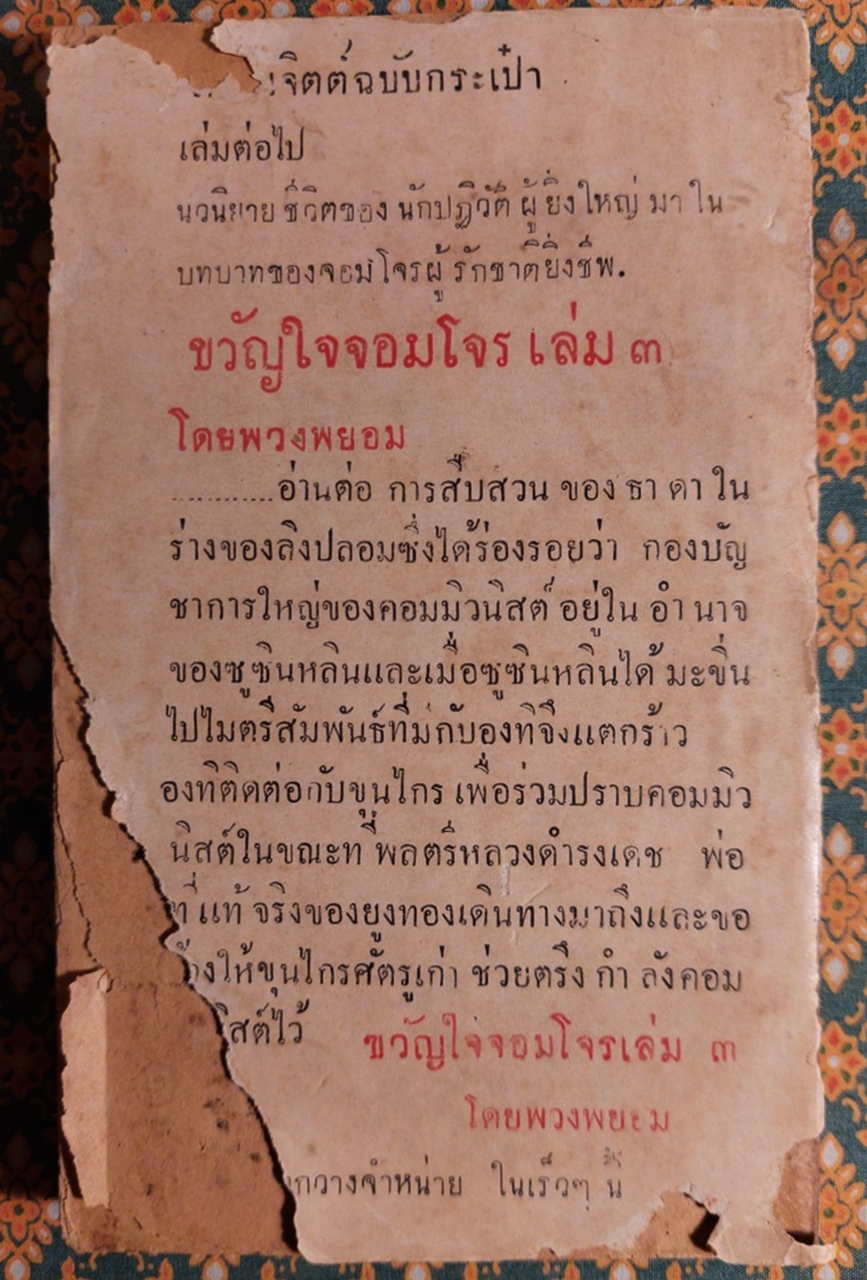 จิตต์ฉบับกระเป๋า
เล่มต่อไป
นวนิยาย ชีวิตของ นักปฏิวัติ ผู้ ยิ่งใหญ่ มา ใน
บทบาทของจอมโจรผู้ รักชาติยิ่งชีพ.
ขวัญใจจอมโจร เล่ม ๓
โดยพวงพยอม
............อ่านต่อ การสืบสวน ของ ธา ดา ใน
ร่างของลิงปลอมซึ่งได้ร่องรอยว่า กองบัญ
ชาการใหญ่ของคอมมิวนิสต์ อยู่ใน อำ นาจ
ของซูซินหลินและเมื่อซูซินหลินได้ มะขิ่น
ไปไมตรีสัมพันธ์ที่มีกับองทิจึงแตกร้าว
องทิติดต่อกับขุนไกร เพื่อร่วมปราบคอมมิว
นิสต์ในขณะที่ พลตรีหลวงดำรงเดช พ่อ
ที่ แท้ จริงของยูงทองเดินทางมาถึงและขอ
ให้ขุนไกรศัตรูเก่า ช่วยตรึง กำ ลังคอม
นิสต์ไว้
ขวัญใจจอมโจรเล่ม ๓
โดยพวงพยอม
กวางจำหน่าย ในเร็วๆ นี้